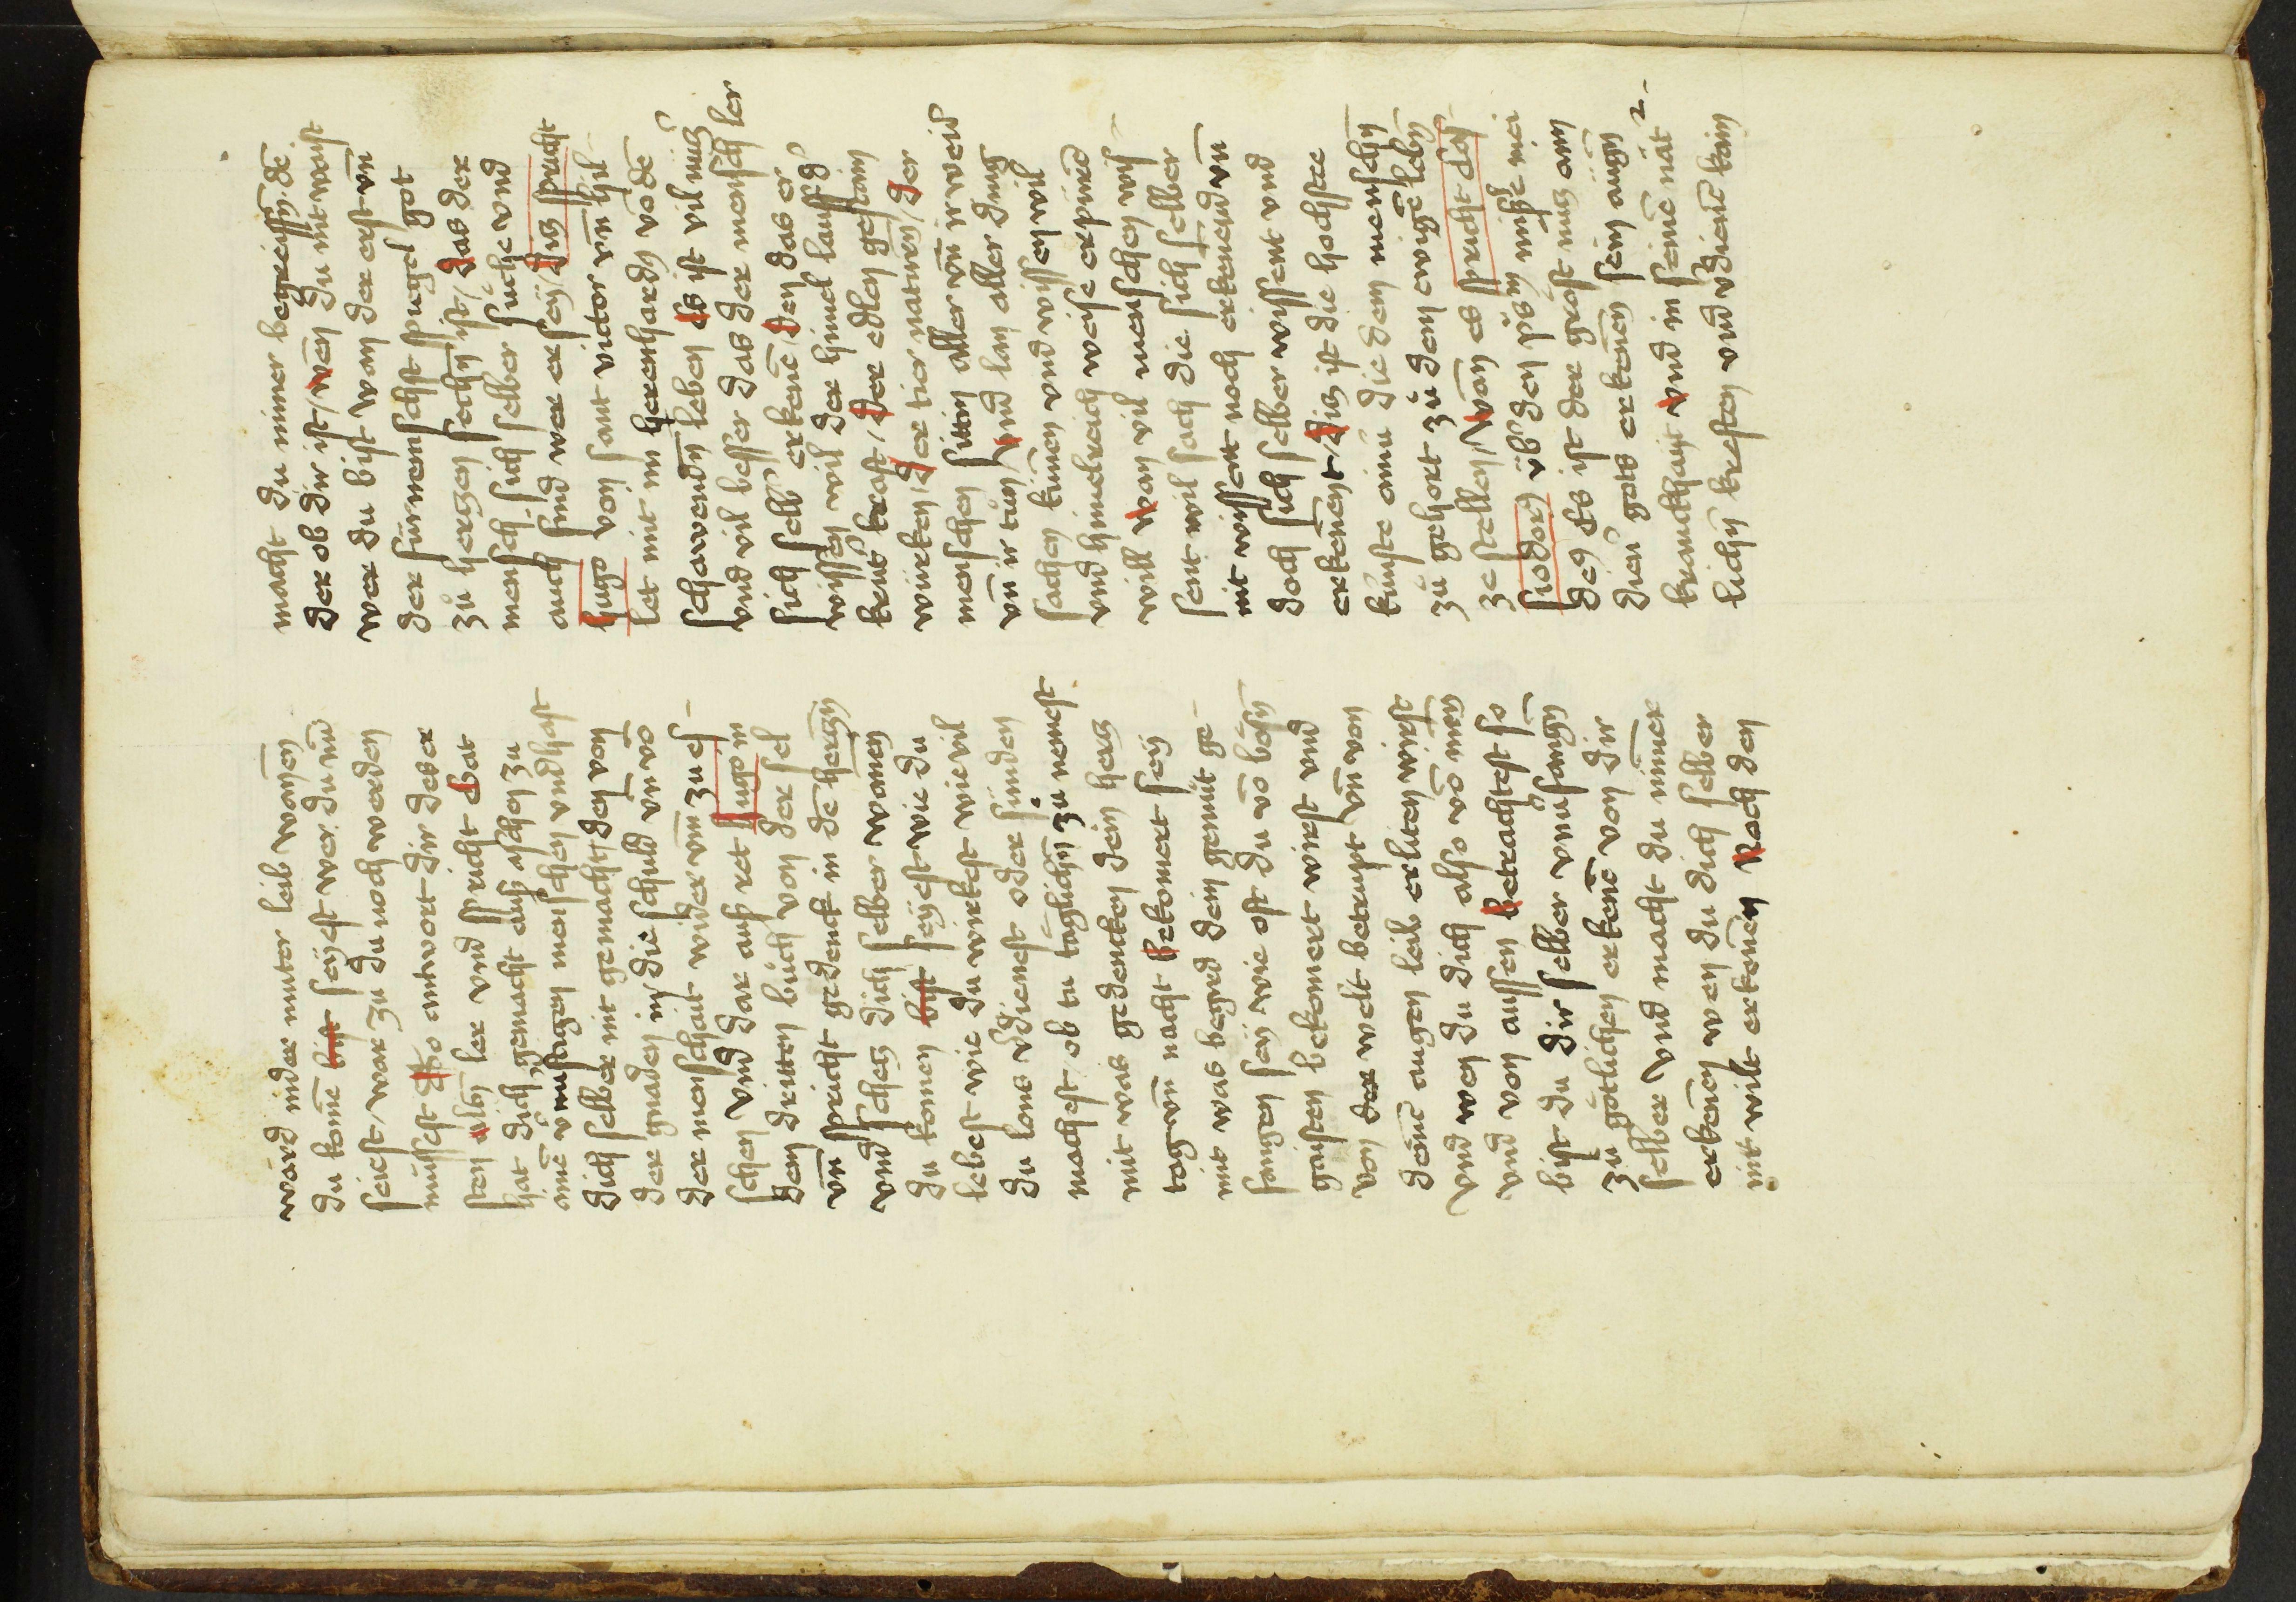 ward in der muter leib wonen
du kome bist seyest wer du nun
seiest/ war zu du noch werden
müssest Also antwort dir der er
sten alten ler vnd spricht Gat
hat dich gemacht auß aschen zu
aine vnmüsigen menschen vnd hast
dich selber nit gemacht/ den von
der gnaden in die schuld vn vo
der menschait wider vm zu es
schen vnd dar auß ret hugo in
dem dritten buch von der sel
vn spricht gedenck in de hertzn
vnd schez dich selber wannen
du komen bist seyest wie du
lebest wie du wirkest wie vil
du lons vdienest oder sünden
machest ob tu täglichn zu nemest
mit was gedencken dein herz
tag vn nacht bekomert sey
mit was begird dein gemüt ge
fangen sey wie oft du vo bösn
gaisten bekomert wirst vnd
von der welt betrupt vn von
deine augen leib erliten wirst
vnd wen du dich also vo inen
vnd von aussen betrachtest so
bist du dir selber vnüsangn
zu götlichen erkene von dir
selber vnd macht du nimer
erkenen wen du dich selber
nit wilt erkenen Nach den
macht du nimer begreiffn de
der ob dir ist/ wen du nit waist
wer du bist wan der erst vn
der fürnemschst spiegel got
zu herzen sechn ist/ das der
mensch sich selber suche vnd
auch find wer er sey/ diß spricht
hugo von sant victor vn hil
let mit im herenhardn vo de
schawendn leben Es ist vil nucz
vnd vil besser das der mensch ler
sich selb erkene/ den das er
wissen wil der himel lauff d
krut kraft/ der edlen gestain
würken/ der tier naturen/ der
menschen sitten aller vn ir weis
vn ir tun/ vnd lan aller ding
sachen künen vnd wissen wil
vnd himelreich weise erpind
will wan vil menschen wis
sent wil sach die sich selber
nit wissent noch erkenend vn
doch sich selber wissent vnd
erkenent/ diz ist die hochste
kunste ainü die dem menschn
zu gehort zu dem ewige lebn
ze stellen/ wan es spricht das
sidorg üb den psm miserere mei
deg Es ist der gröst nucz am
dien gots erkenen sein augn
kranckhait vnd in seine nät
lichn kresten vnd vdiene kain